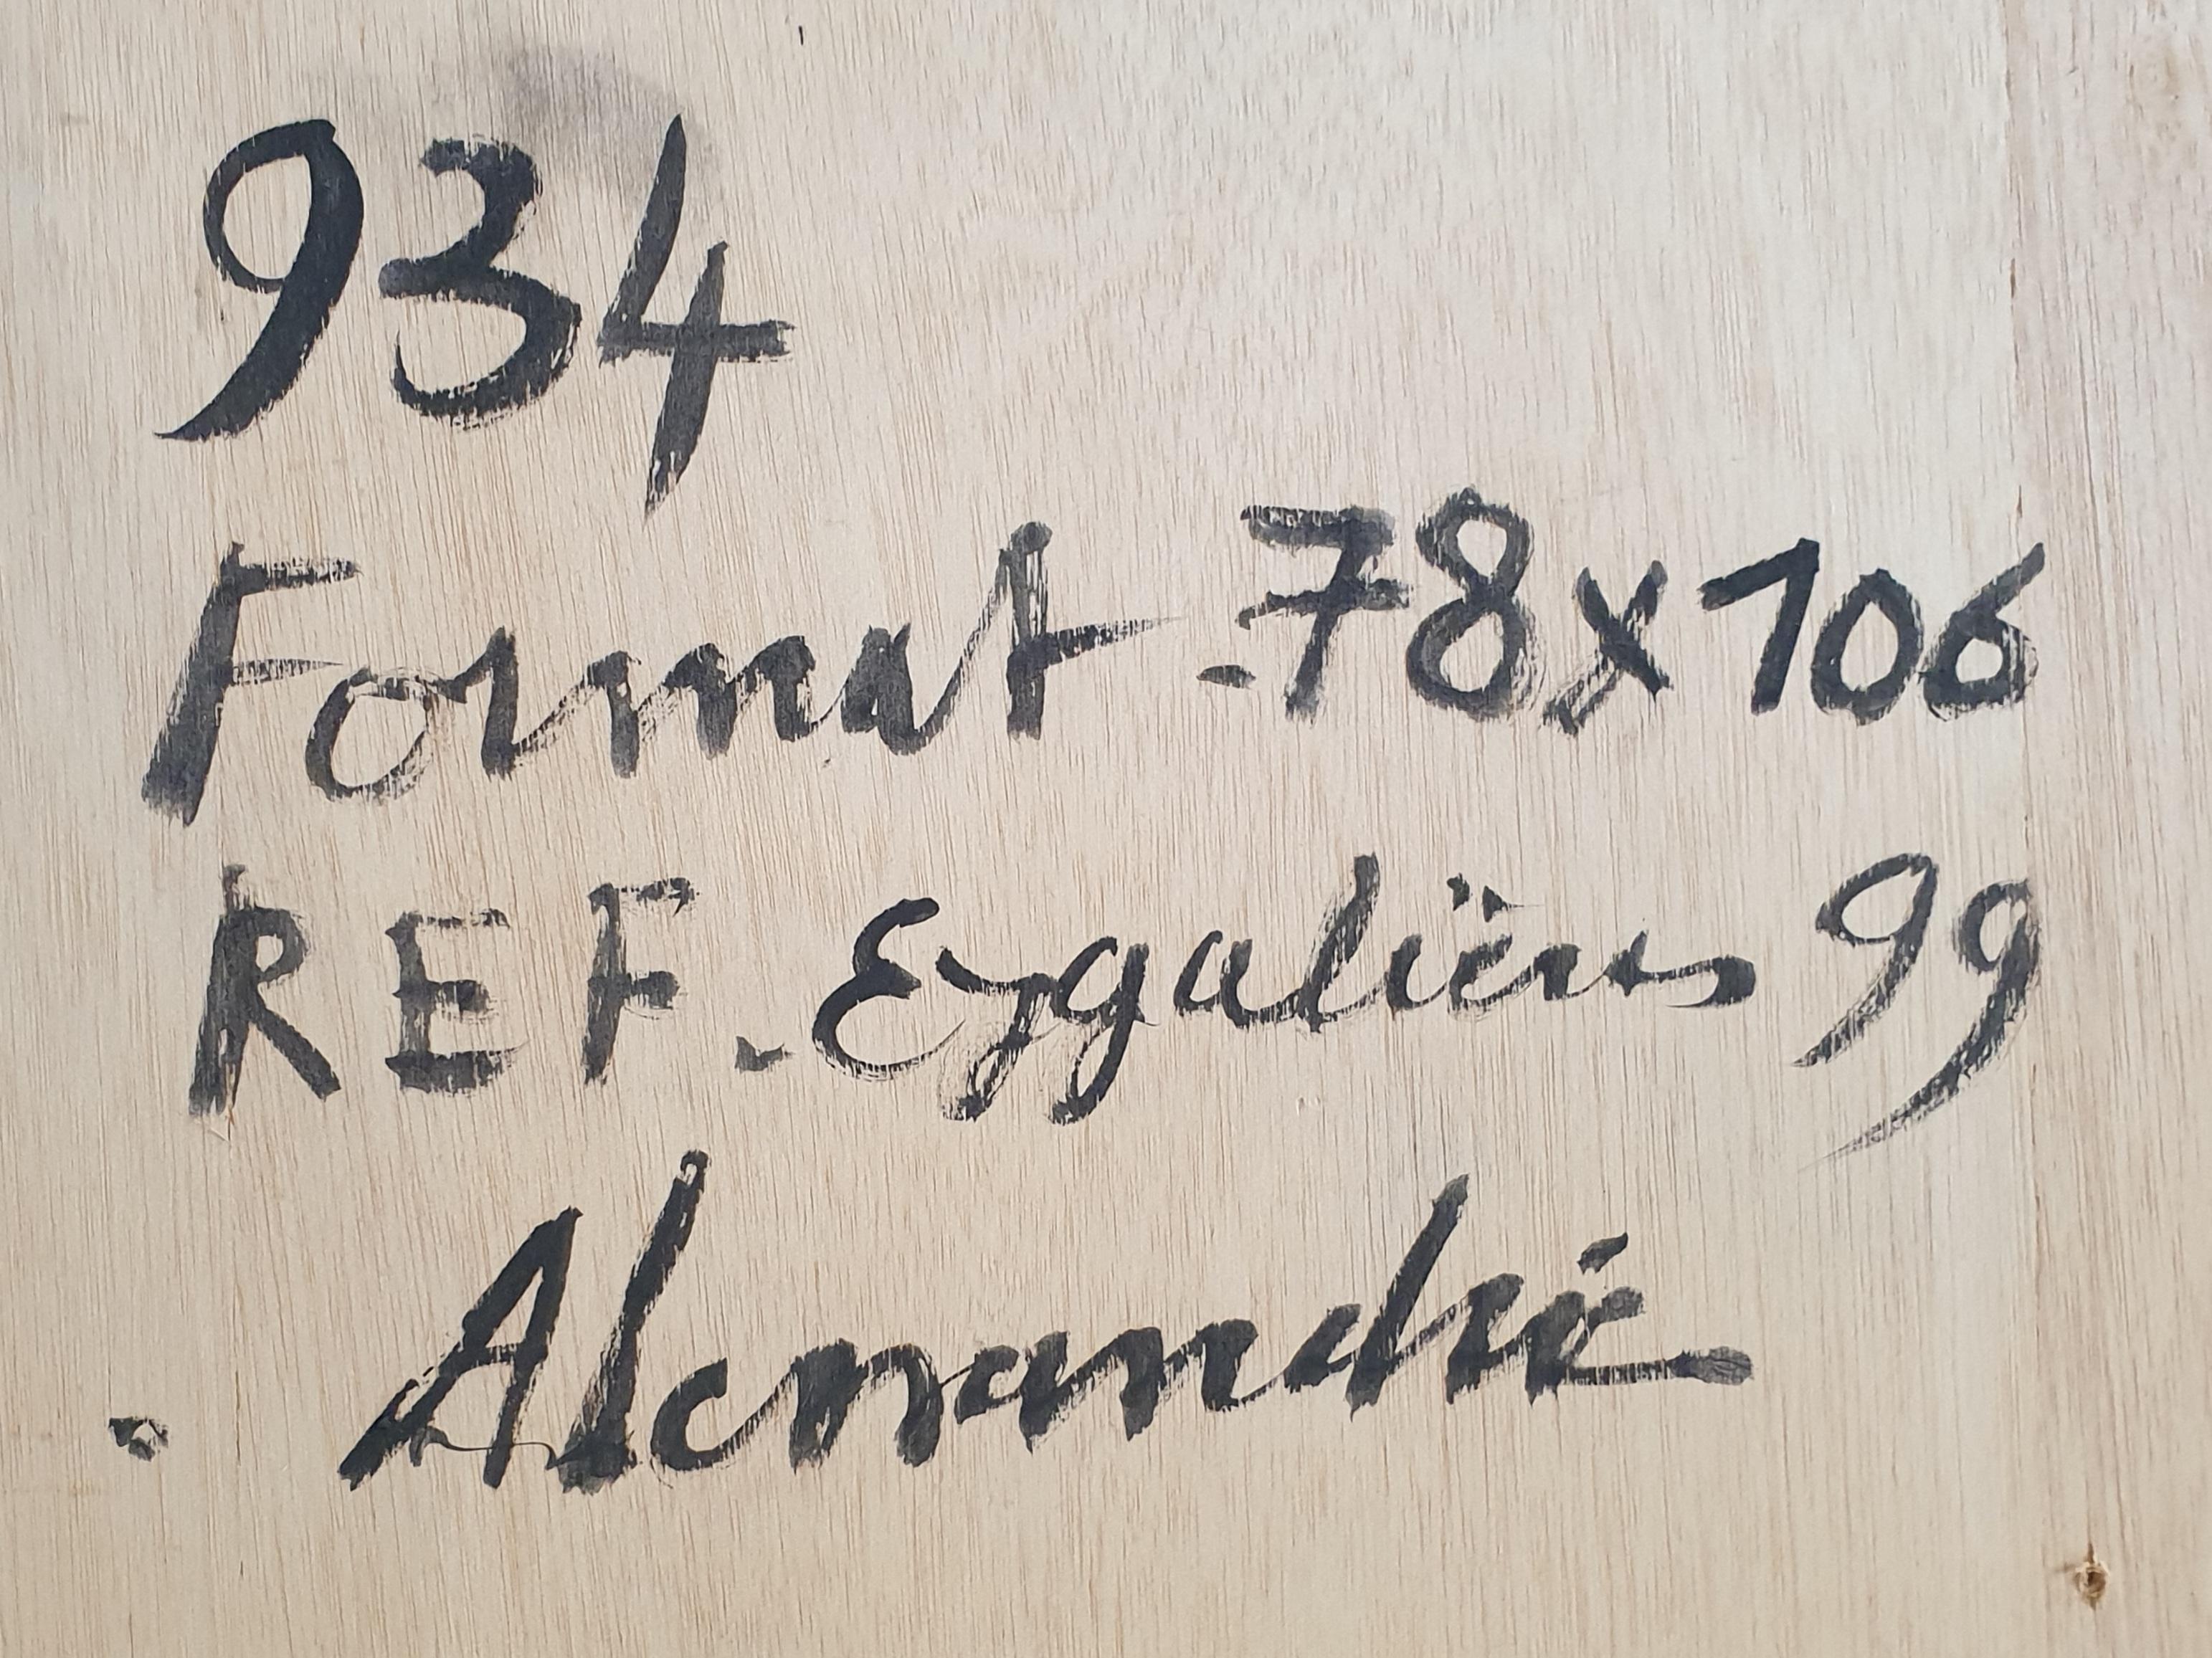 934
Format - 78x106
REF. Eygalières 99
Alexandre